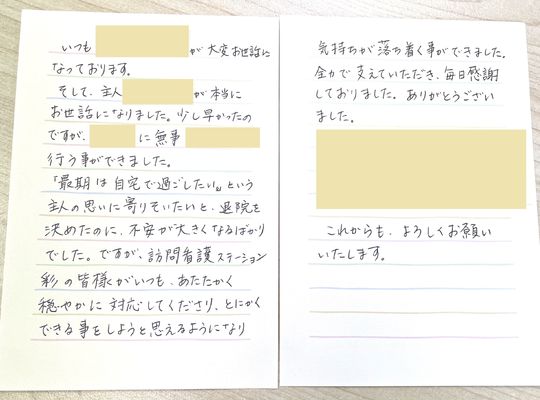 いつも が大変お世話に
なっております。
そして、主人 が本当に
お世話になりました。少し早かったの
ですが、 に無事
行う事ができました。
「最期は自宅で過ごしたい」という
主人の思いに寄りそいたいと、退院を
決めたのに、不安が大きくなるばかり
でした。ですが、訪問看護ステーション
彩の皆様がいつも、あたたかく
穏やかに対応してくださり、とにかく
できる事をしようと思えるようになり
気持ちが落ち着く事ができました。
全力で支えていただき、毎日感謝
しておりました。ありがとうござい
ました。
これからも、よろしくお願い
いたします。